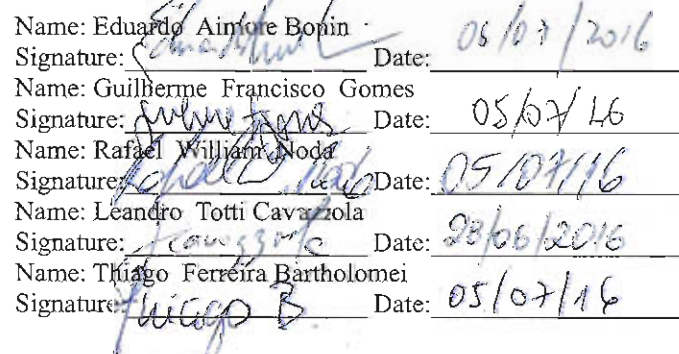 Name: Eduardo Aimore Bonin
Signature: Date: 05/07/2016
Name: Guilherme Francisco Gomes
Signature: Date: 05/07/16
Name: Rafael William Noda
Signature: Date: 05/07/16
Name: Leandro Totti Cavazzola
Signature: Date: 28/06/2016
Name: Thiago Ferreira Bartholomei
Signature: Thiago B Date: 05/07/16